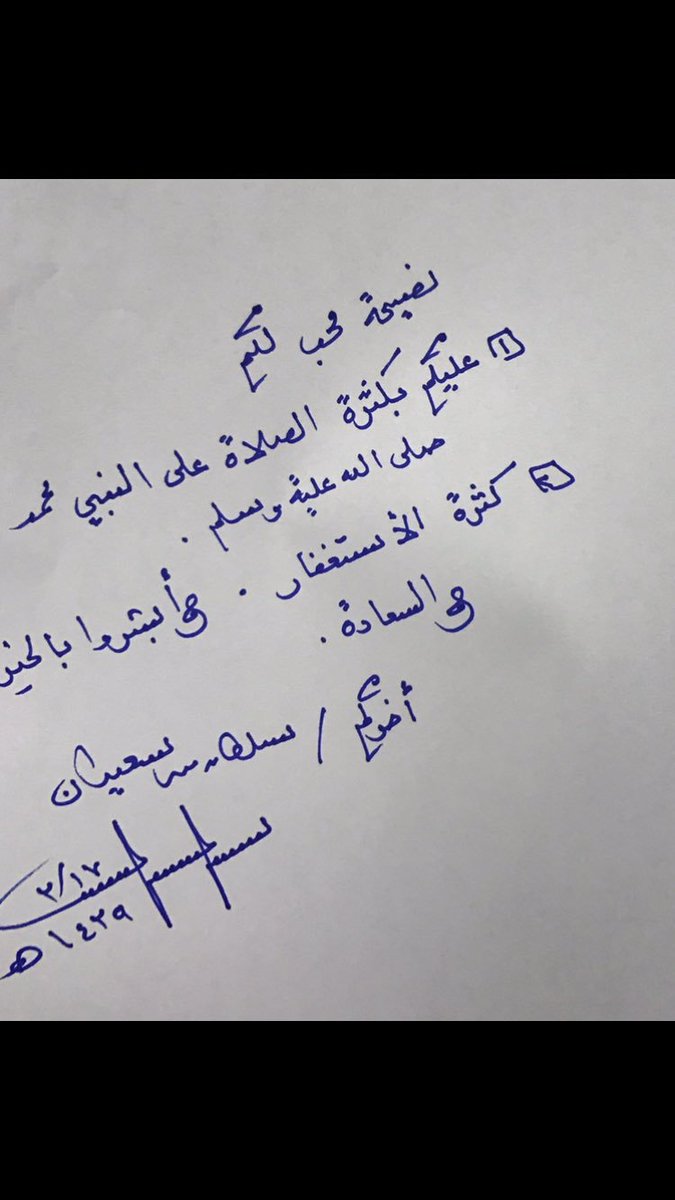 نصيحة محب لكم
[١] عليكم بكثرة الصلاة على النبي محمد
صلى الله عليه وسلم .
[٢] كثرة الأستغفار . أبشروا بالخير
السعادة .
أخوكم /
١٢/٣
١٤٣٩ هـ